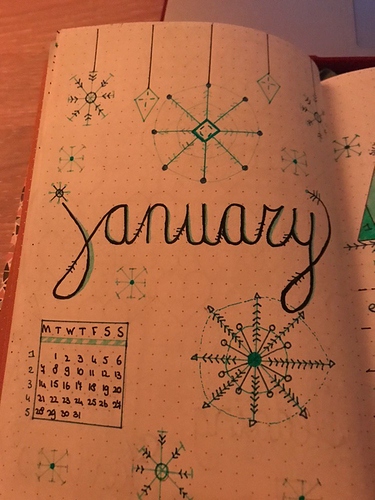 january
M T W T F S S
1 1 2 3 4 5 6
2 7 8 9 10 11 12 13
3 14 15 16 17 18 19 20
4 21 22 23 24 25 26 27
5 28 29 30 31